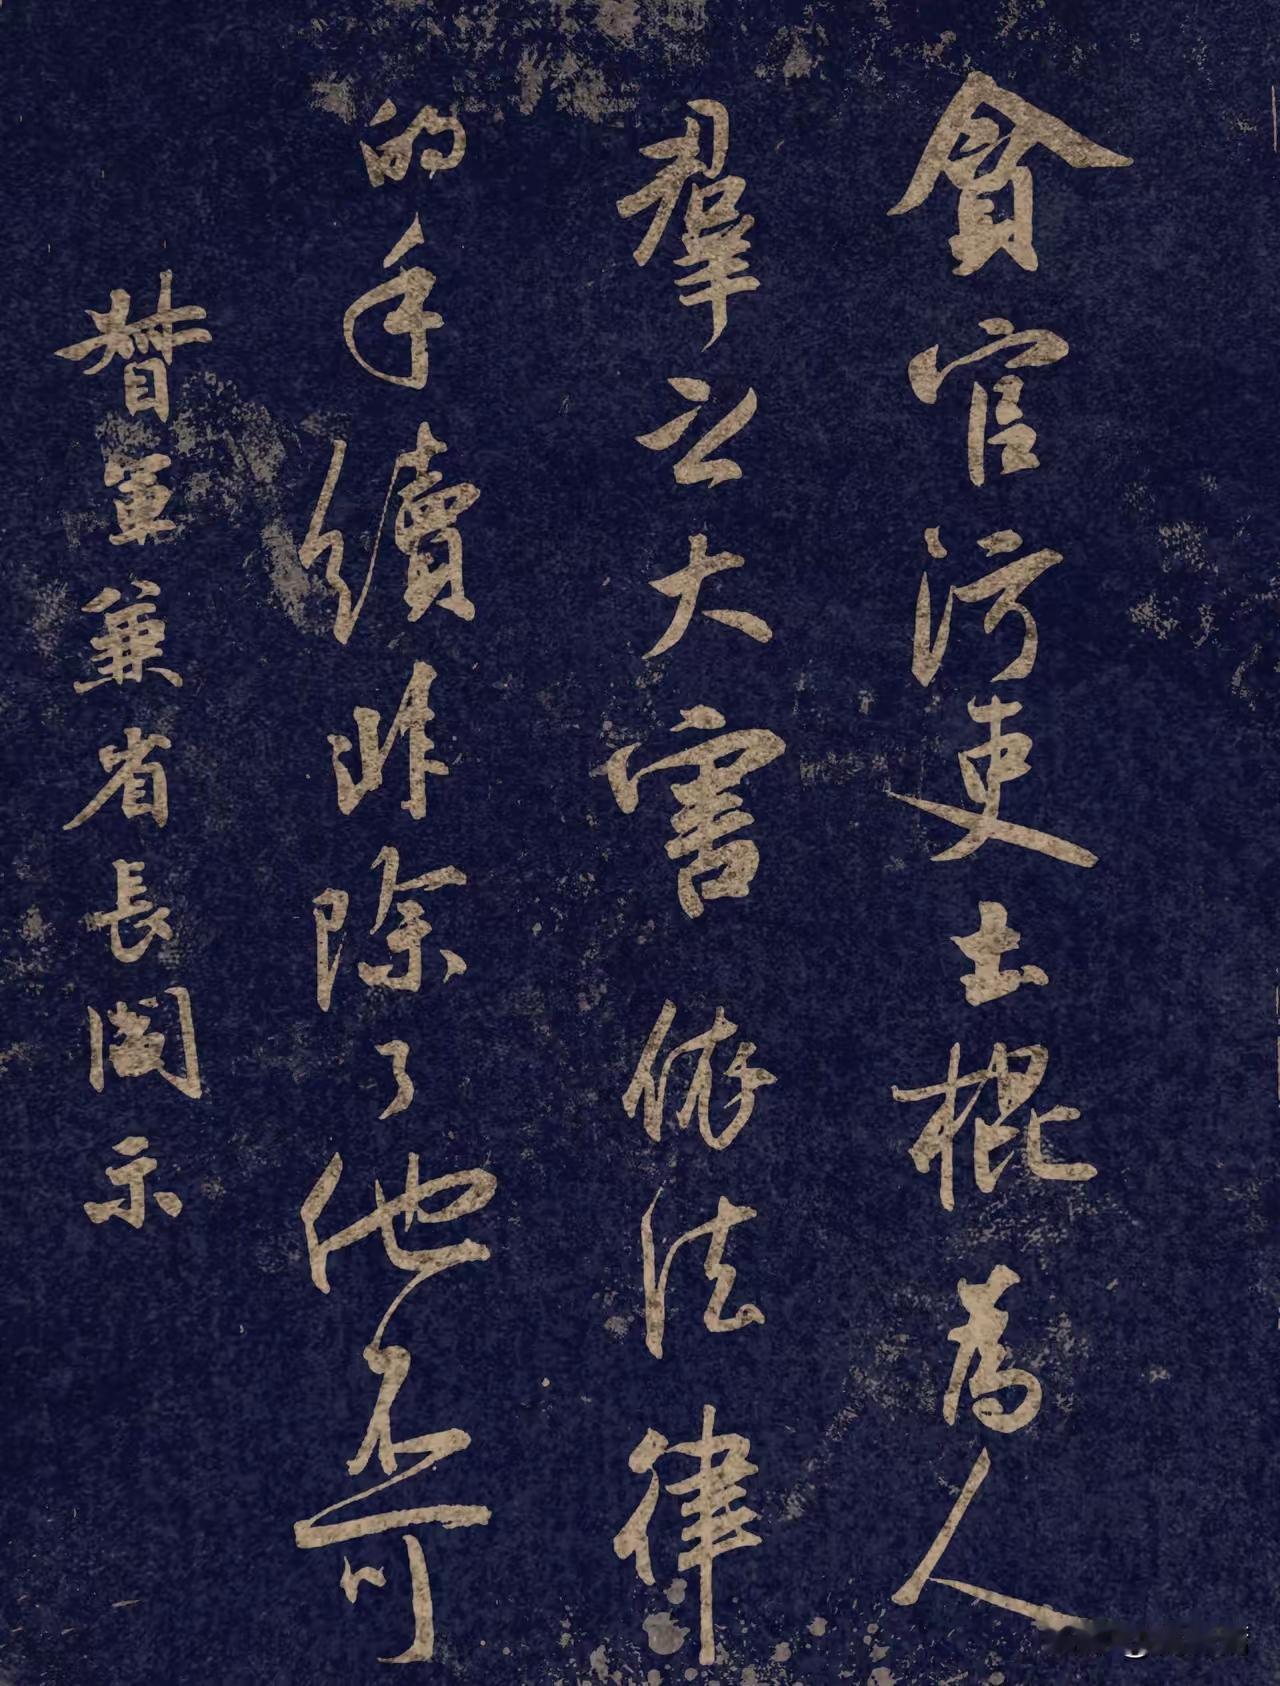 貪官污吏土棍為人
羣之大害依法律
的手續非除了他不可
督軍兼省長閻示